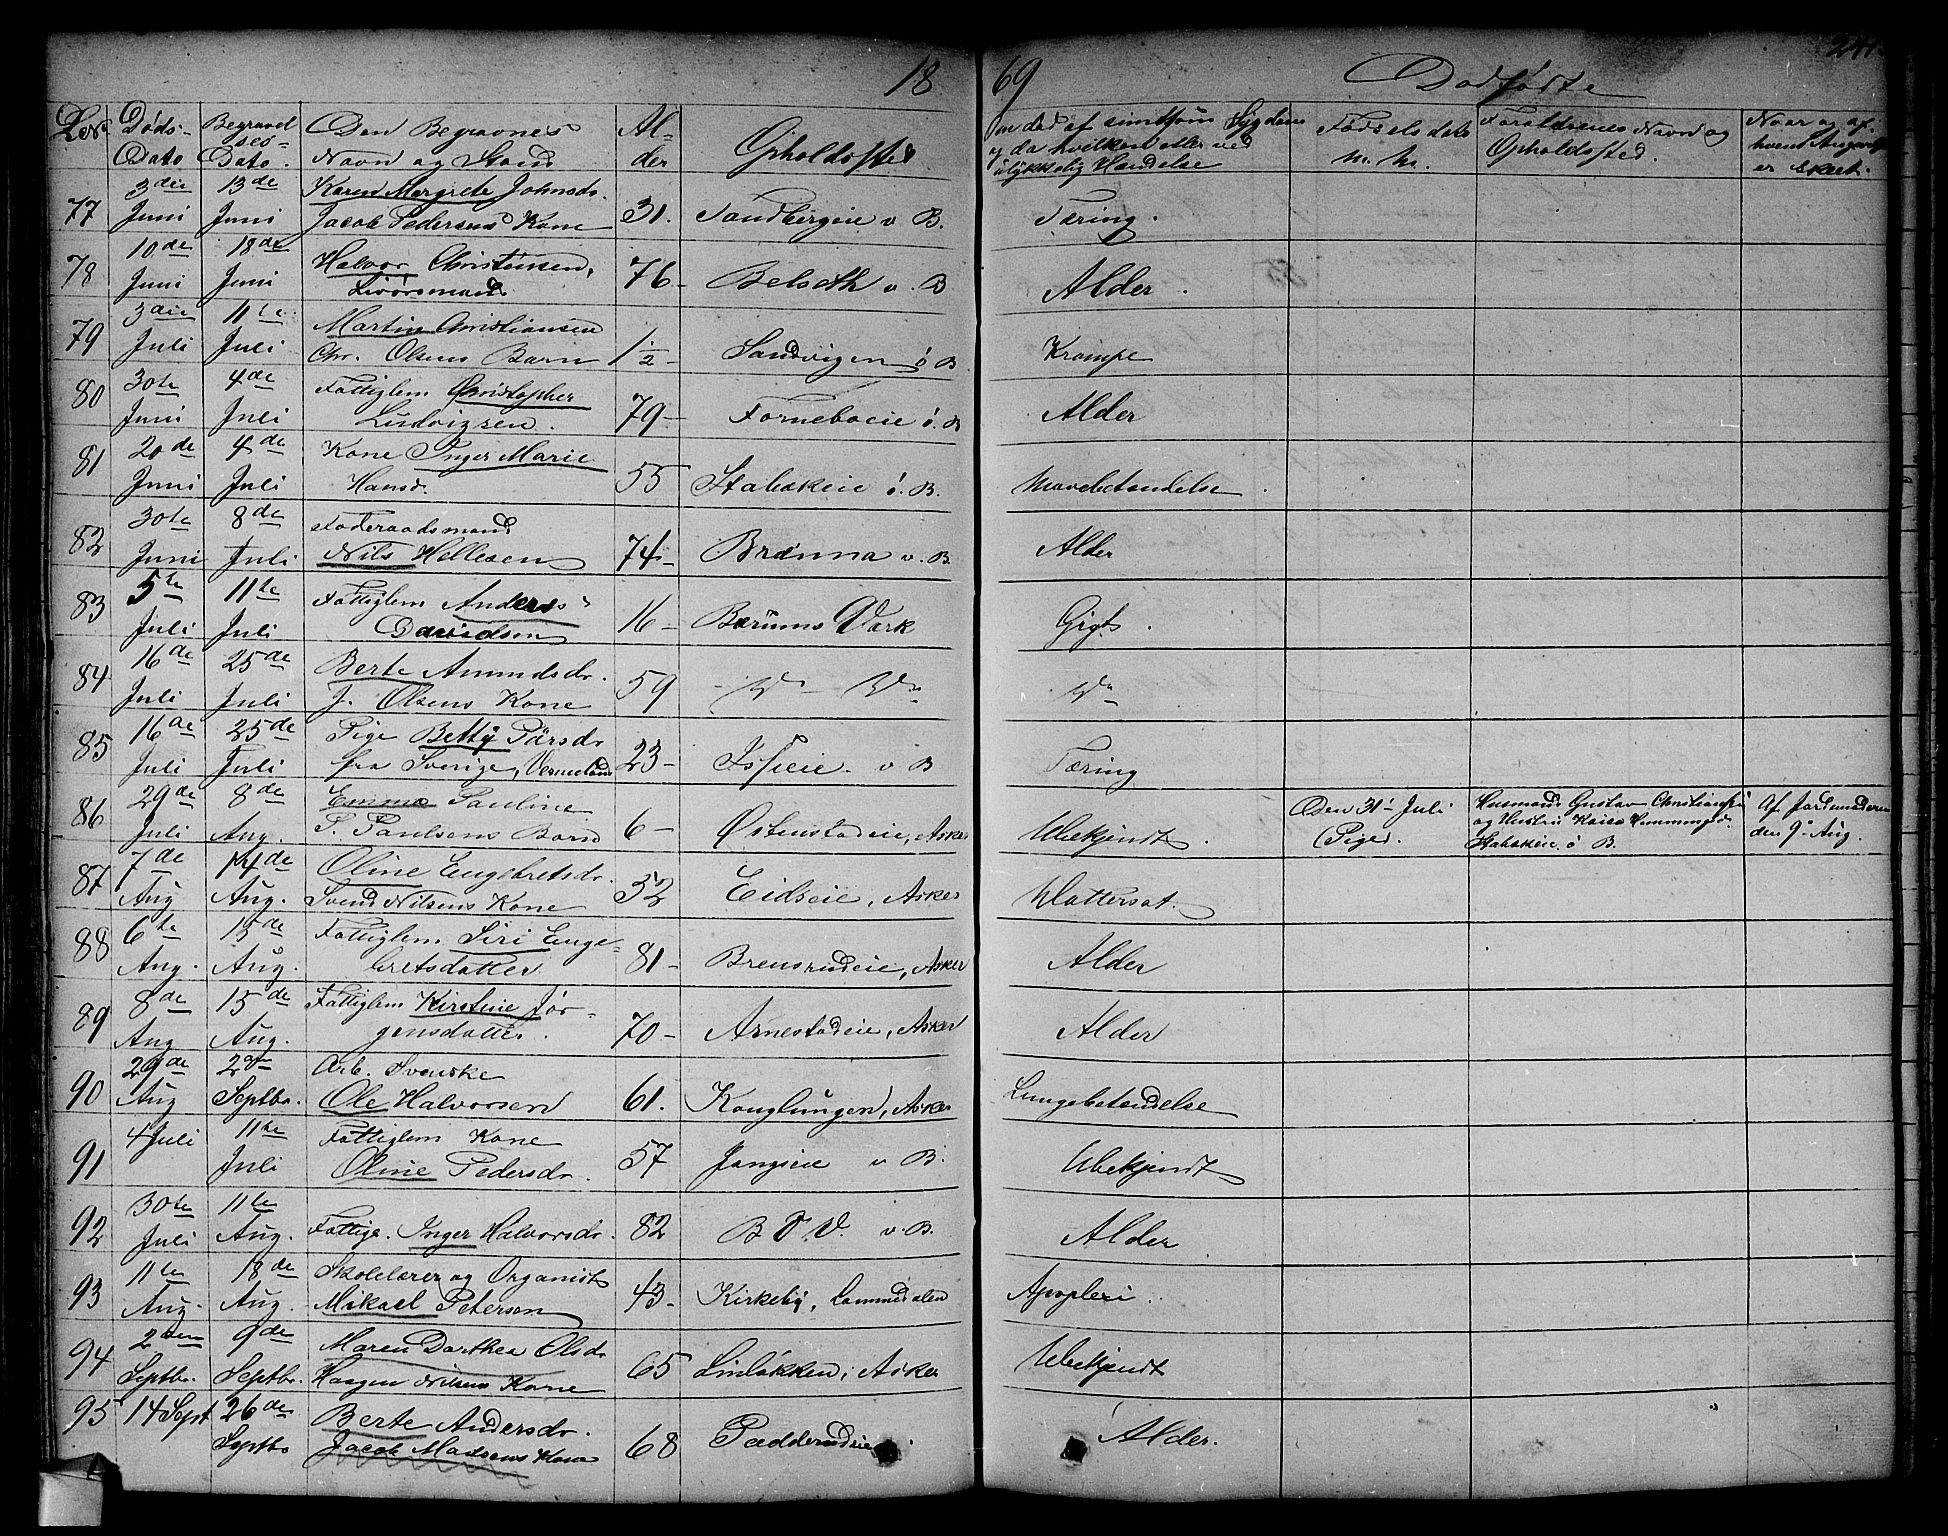 18 69 Dødfødte
No Døds-Dato Begravelses-Dato. Den Begravnes Navn og Stand Alder Opholdssted Om død af smitsom Sygdom og da hvilken eller ved ulykkelig Hændelse Fødselsdato m. m. Forældrenes Navn og Opholdssted. Naar og af hvem er skeet.
77 3die Juni 13de Juni Karen Margrete Johnsdr. 31. Sandbergeie v B. Tæring.
Jacob Pedersens Kone
78 10de Juni 18de Juni Halvor Christensen, 76 - Belseth v. B Alder.
79 3die Juli 11te Juli Martin Christiansen 1 1/2 - Sandvigen ö B Krampe
Chr. Olsens Barn
80 30te Juni 4de Juli Fattiglem Christopher 79 - Forneboeie ö. B Alder
Ludvigsen.
81 20de Juni 4de Juli Kone Inger Marie 55 Stabækeie ö. B. Mavebetændelse.
Hansd.
82 30te Juni 8de Juli Føderaadsmand 74 - Brænna v. B. Alder
Nils Hellesen
83 5te Juli 11te Juli Fattiglem Anders 16 - Bærums Værk Gigt.
Davidsen
84 16de Juli 25de Juli Berte Amundsdr. 59 - Do - Do Do
J. Olsens Kone
85 16de Juli 25de Juli Pige Betty Pärsdr 23 - v B Tæring
fra Sverige, Vermeland
86 29de Juli 8de Aug. Emma Pauline 6 - Østenstadeie, Asker Ubekjendt. Den 31' Juli (Pige). Husmand Gustav Christiansen Af Jordmoderen
P. Paulsens Barn og Hustru Kaisa Hemmingsd. den 9' Aug.
Stabækeie ö B.
87 7de Aug 14de Aug. Oline Engebretsdr. 52 Eidseie, Asker Vattersot.
Svend Nilsens Kone
88 6te Aug. 15de Aug. Fattiglem Siri Enge- 81 - Brensrudeie, Asker Alder
bretsdatter
89 8de Aug 15de Aug. Fattiglem Kirstine Jör- 70 - Arnestadeie, Asker Alder
gensdatter.
90 29de Aug 2den Septbr. Arb. Svenske 61. Konglungen, Asker Lungebetændelse
Ole Halvorsen
91 4 Juli 11te Juli Fattiglem Kone 57 v B. Ubekjendt
Oline Pedersdr.
92 30te Juli 11te Aug. Fattige. Inger Halvorsdr. 82 v. B. Alder.
93 11te Aug. 18de Aug. Skolelærer og Organist 43 - Kirkeby, Lommedalen Apoplexi.
Mikael Petersen
94 2den Septbr. 9de Septbr. Maren Dorthea Olsdr 65 Linløkken, Asker Ubekjendt
Haagen Nilsens Kone
95 14 Sept 26de Septbr Berte Andersdr. 68 Padderudeie. Alder.
Jacob Madsens Kone